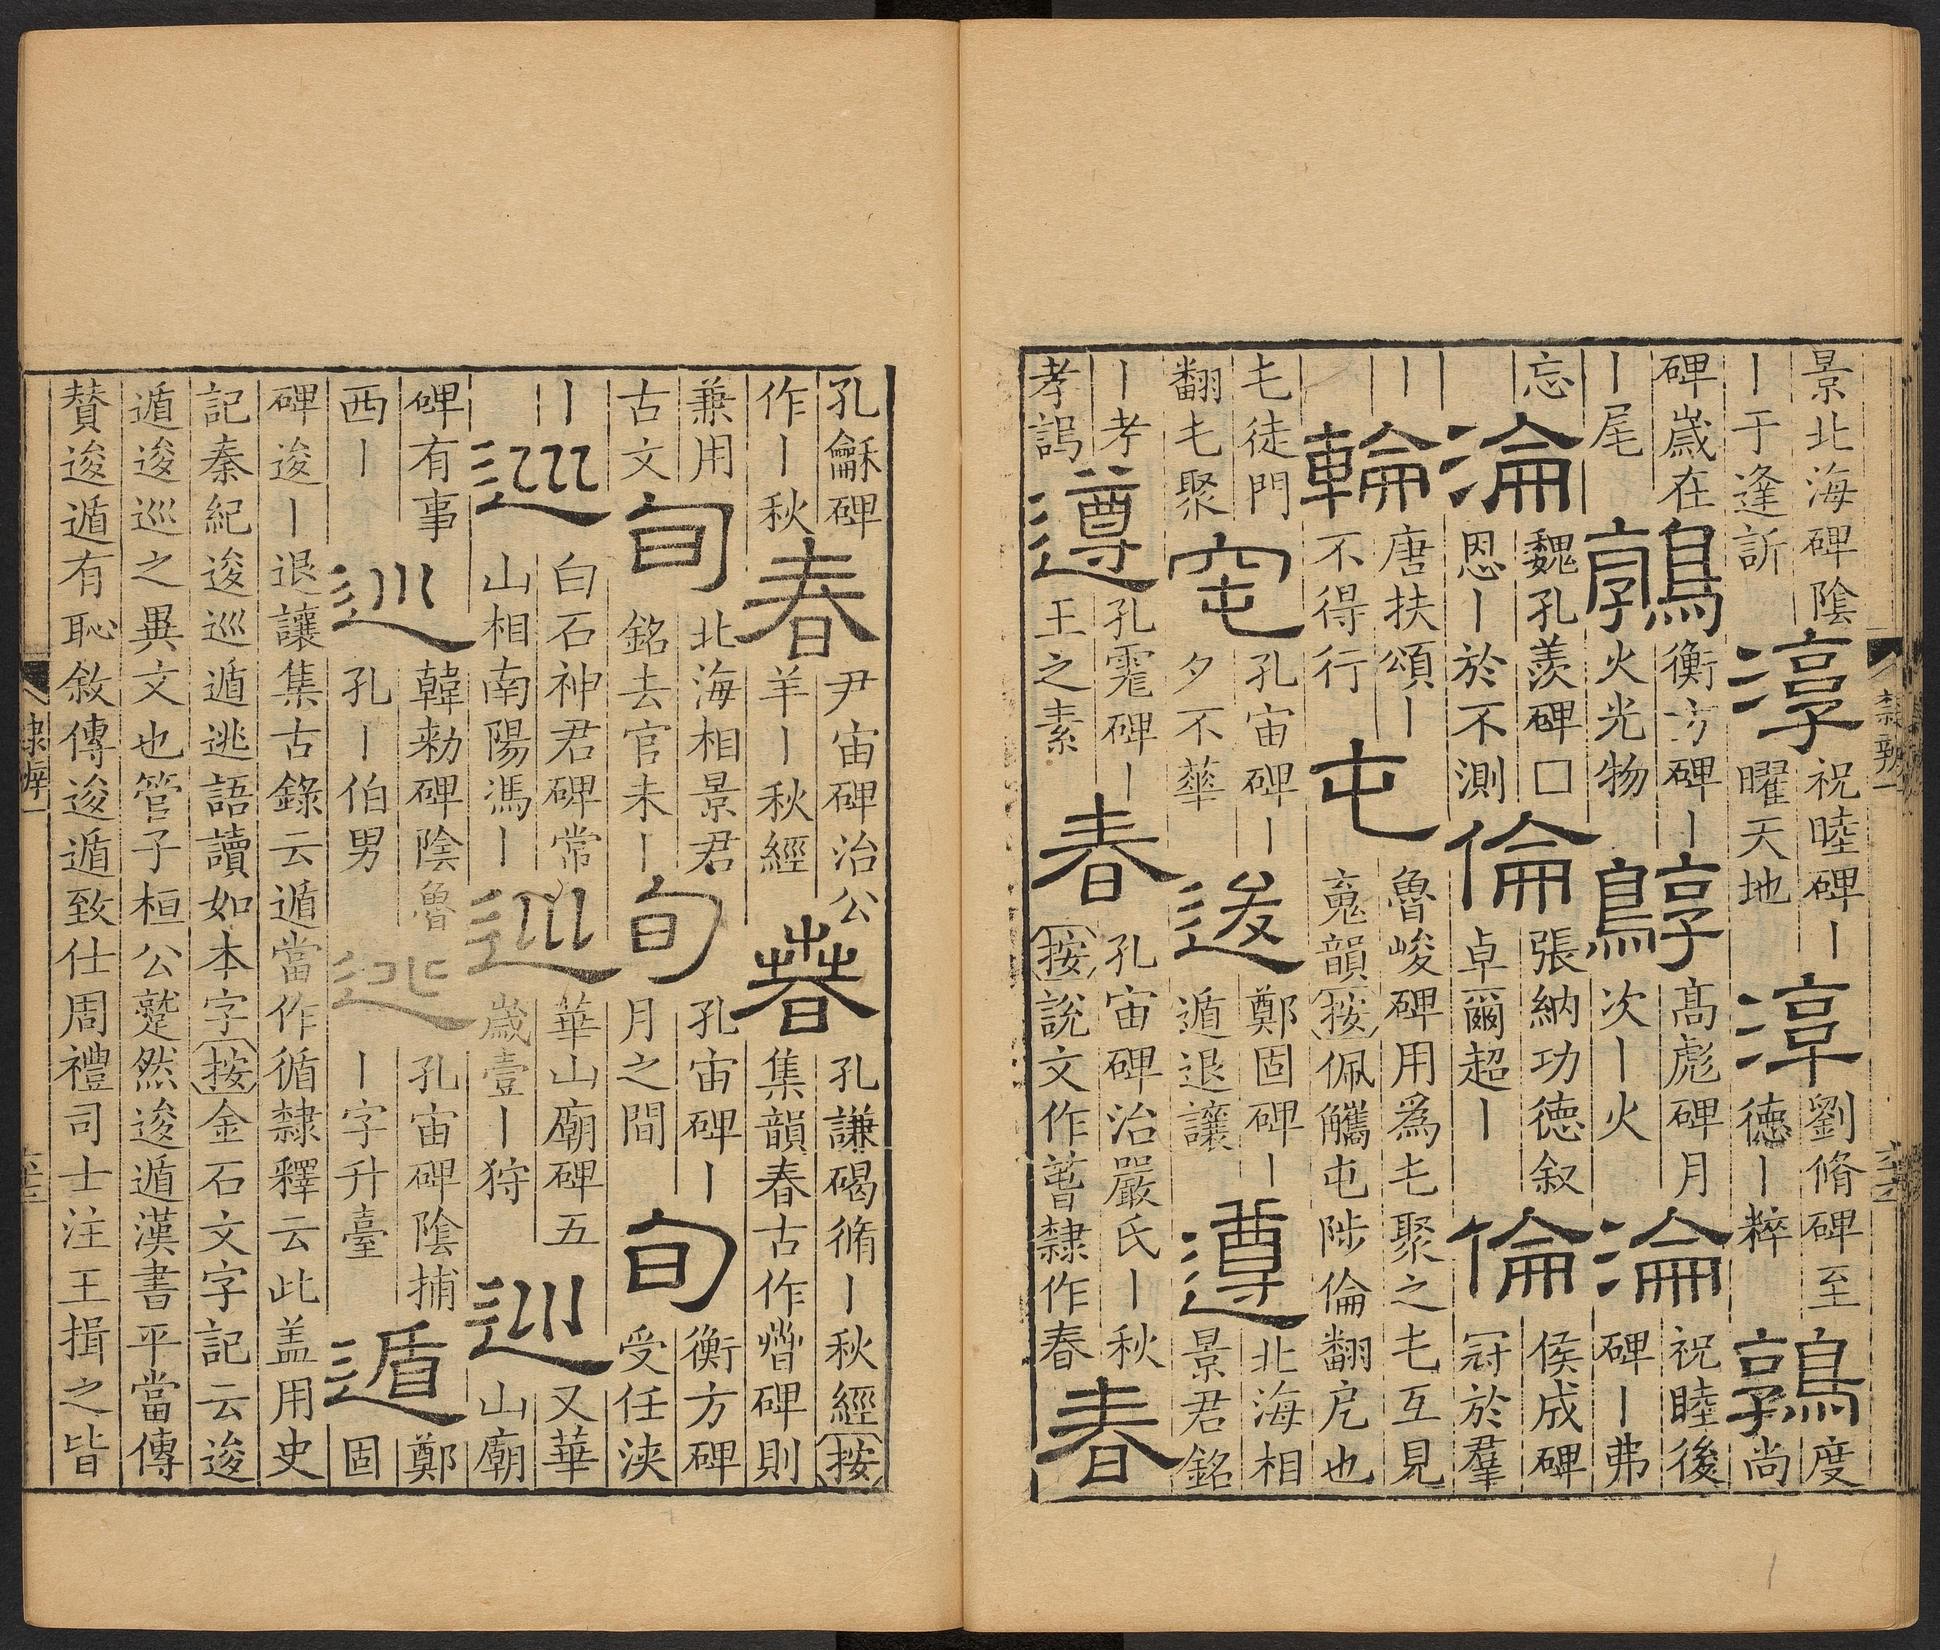 景北海碑陰丨于逢訢淳祝睦碑丨曜天地淳劉脩碑至德丨粹鶉度尚
碑嵗在丨尾鶉衡方碑丨火光物鶉高彪碑月次丨火淪祝睦後碑丨弗
忘淪魏孔羨碑口恩丨於不測倫張納功德叙卓爾超丨倫侯成碑冠於羣
丨輪唐扶頌丨不得行屯魯峻碑用爲乇聚之乇互見䰟韻按佩觿屯陟倫翻戹也
乇徒門翻乇聚窀孔宙碑丨夕不華逡鄭固碑丨遁退讓遵北海相景君銘
丨孝孝謁遵孔霮碑丨王之素春孔宙碑治嚴氏丨秋按説文作萅隸作春春
孔龢碑作丨秋春尹宙碑治公羊丨秋經萶孔謙碣脩丨秋經按集韻春古作萶碑則
兼用古文旬北海相景君銘去官未丨旬孔宙碑丨月之間旬衡方碑受任浹
丨巡白石神君碑常山相南陽馮丨巡華山廟碑五歲壹丨狩巡又華山廟
碑有事西丨巡韓勑碑陰魯孔丨伯男巡孔宙碑陰捕丨字升臺遁鄭固
碑逡丨退讓集古錄云遁當作循隸釋云此盖用史
記秦紀逡巡遁逃語讀如本字按金石文字記云逡
遁逡巡之異文也管子桓公蹵然逡遁漢書平當傳
賛逡遁有恥敘傳逡遁致仕周禮司士注王揖之皆
隸辨一